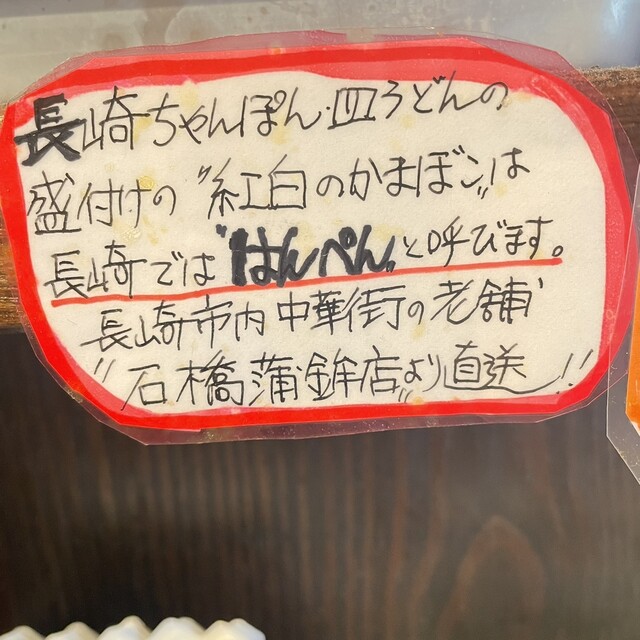 長崎ちゃんぽん・皿うどんの
盛付けの〝紅白のかまぼこ〟は
長崎では〝はんぺん〟と呼びます。
長崎市内中華街の老舗
〝石橋蒲鉾店〟より直送!!